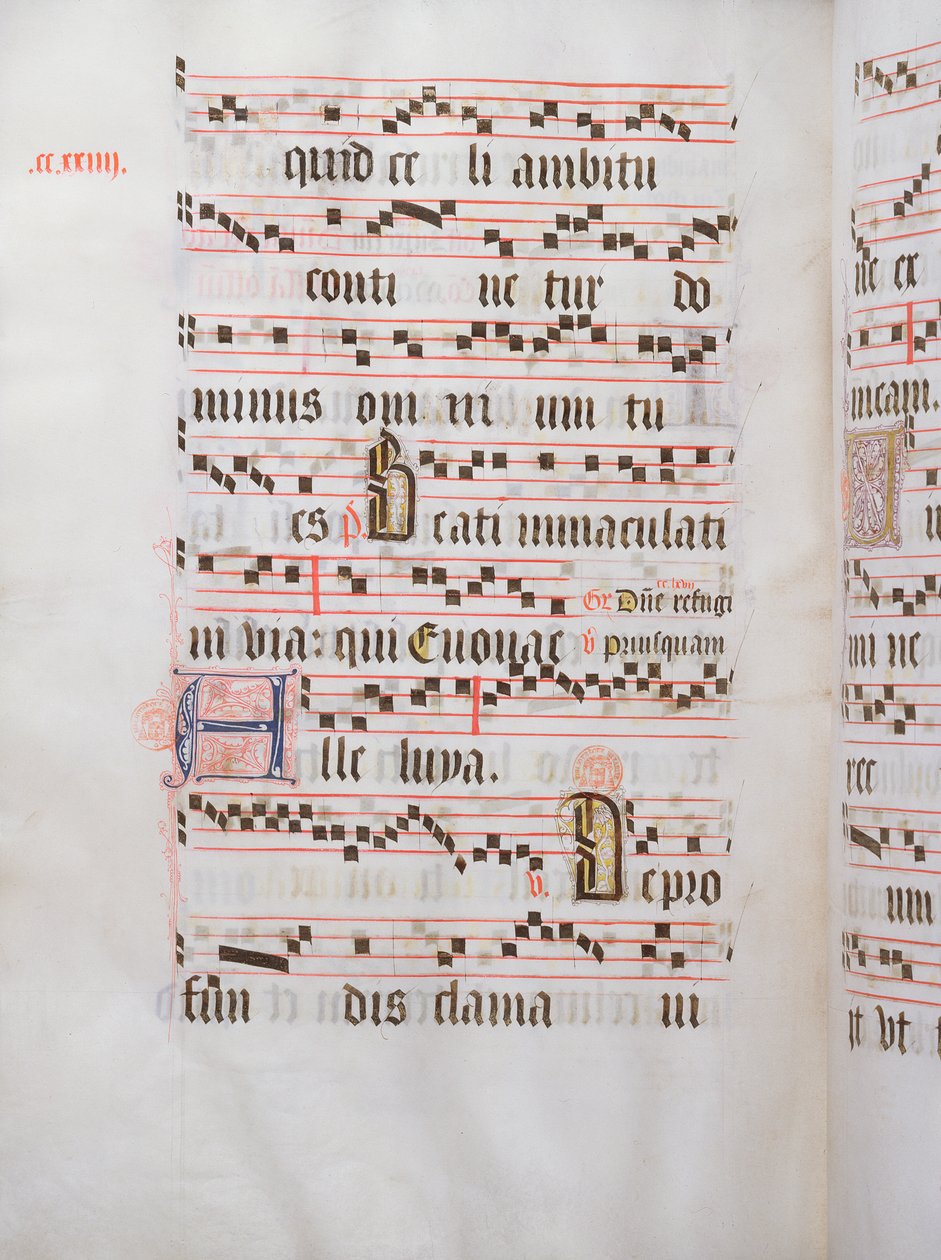 .cc.xxiiij.
quid ce li ambitu
conti ne tur do
minus om ni um tu
es p̄. Beati immaculati
cc.lxvij
in via: qui Euouae Gr Dn̄e refugi
v̄ priusquam
Alle luya.
v. De pro
fun dis clama ui
ne ex
mi ne
um
it vt